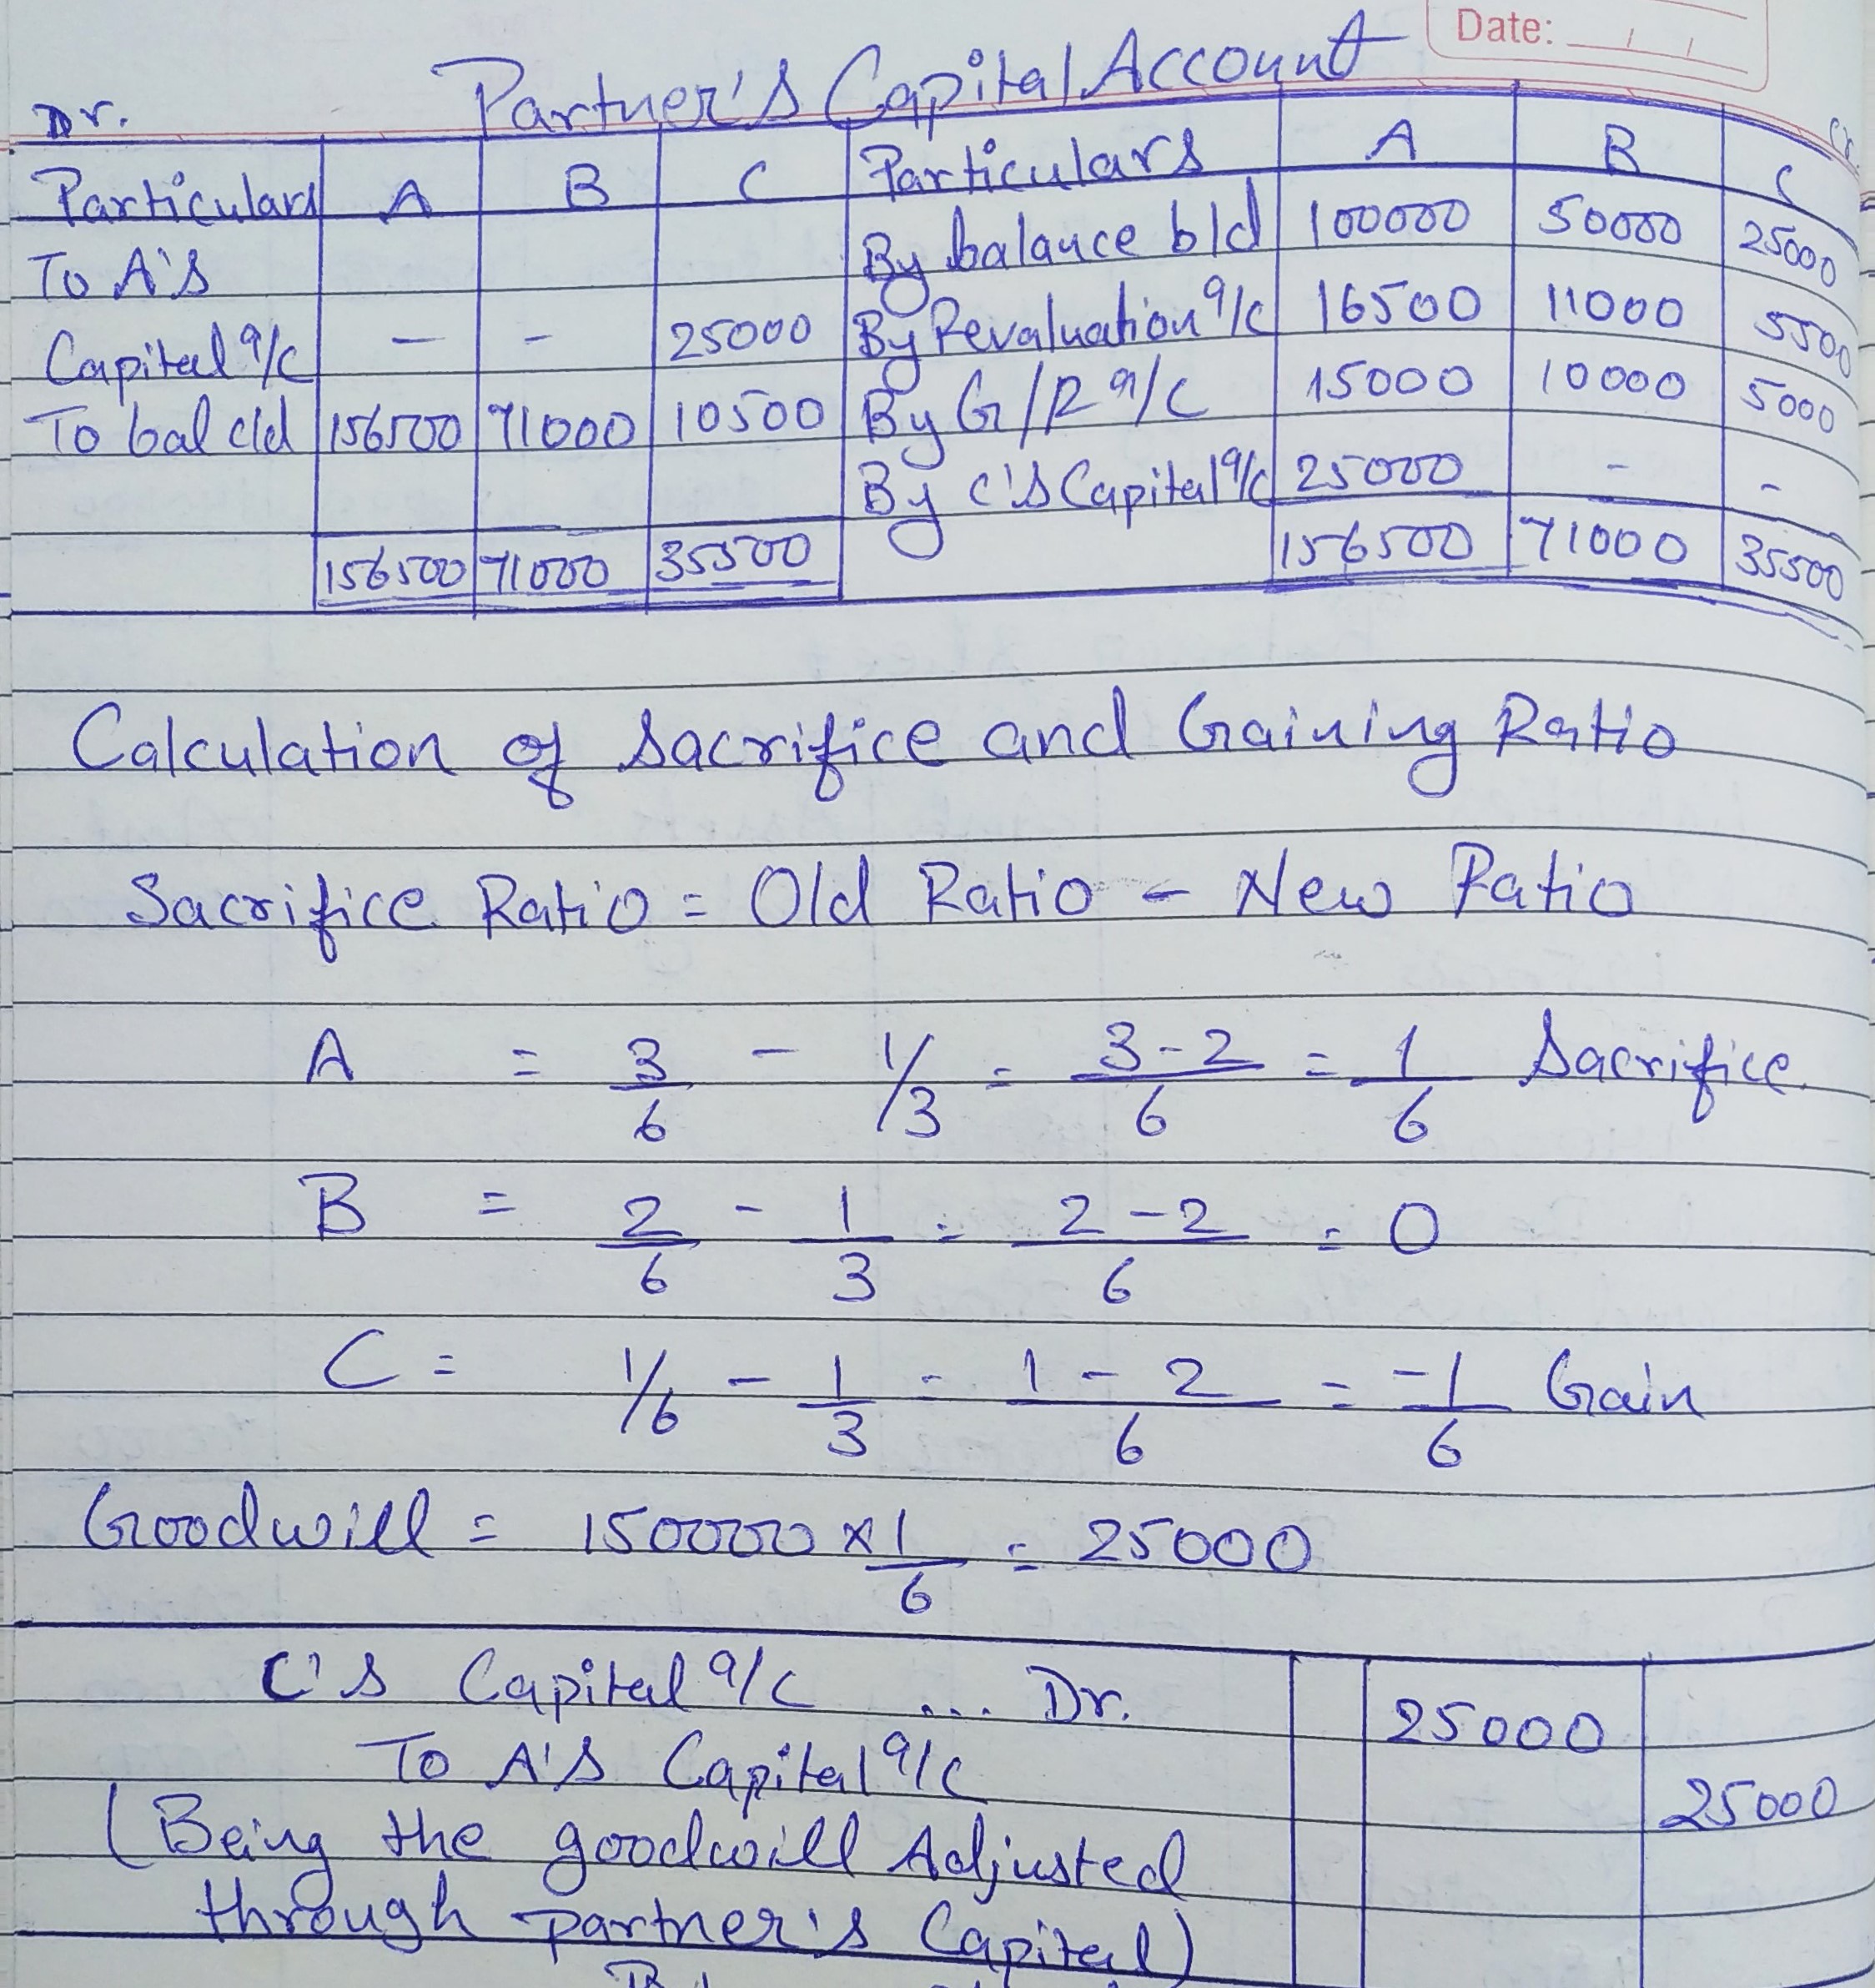 Date:
Partner's Capital Account
Dr.
Particulars A B C Particulars A B C
To A's By balance b/d 100000 50000 25000
Capital a/c – – 25000 By Revaluation a/c 16500 11000 5500
To bal c/d 156500 71000 10500 By G/R a/c 15000 10000 5000
By C's Capital a/c 25000 - -
156500 71000 35500 156500 71000 35500
Calculation of Sacrifice and Gaining Ratio
Sacrifice Ratio = Old Ratio - New Ratio
A = 3/6 - 1/3 = 3-2/6 = 1/6 Sacrifice
B = 2/6 - 1/3 = 2-2/6 = 0
C = 1/6 - 1/3 = 1-2/6 = -1/6 Gain
Goodwill = 150000 × 1/6 = 25000
C's Capital a/c ... Dr. 25000
To A's Capital a/c 25000
(Being the goodwill Adjusted
through partner's Capital)